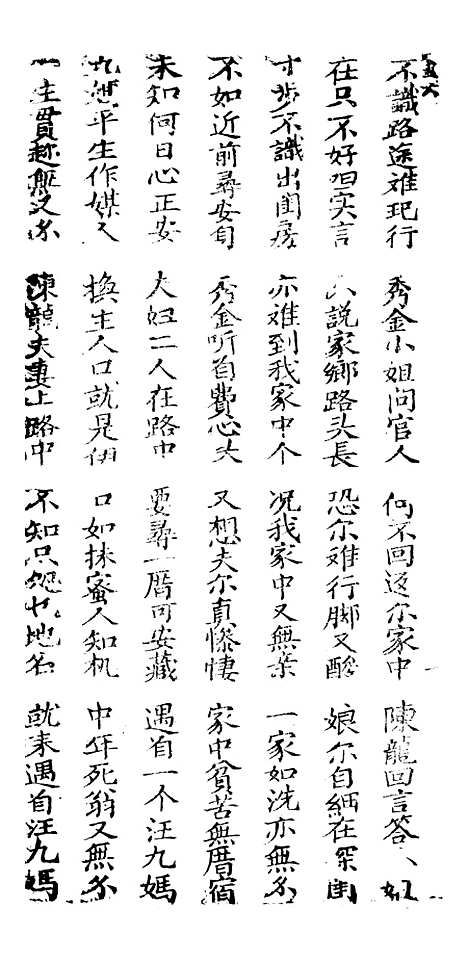 不識路途难 行 秀金小姐问官人 何不回返尔家中 陳龍回言答
在只不好呾实言 說家鄉路头長 恐尔难行脚又酸 娘尔自 在深闺
寸步不識出闺房 亦难到我家中个 况我家中又無亲 一家如洗亦無
不如近前尋安身 秀金听自費心头 又想夫尔真惨悽 家中貧苦無厝宿
未知何日心正安 夫妇二人在路中 要尋一厝可安藏 遇自一个汪九媽
九 平生作媒人 換主人口就是伊 口如抹蜜人知机 中年死翁又無
一生貫趁無义 陳龍夫妻上路中 不知只処乜地名 就来遇自汪九媽